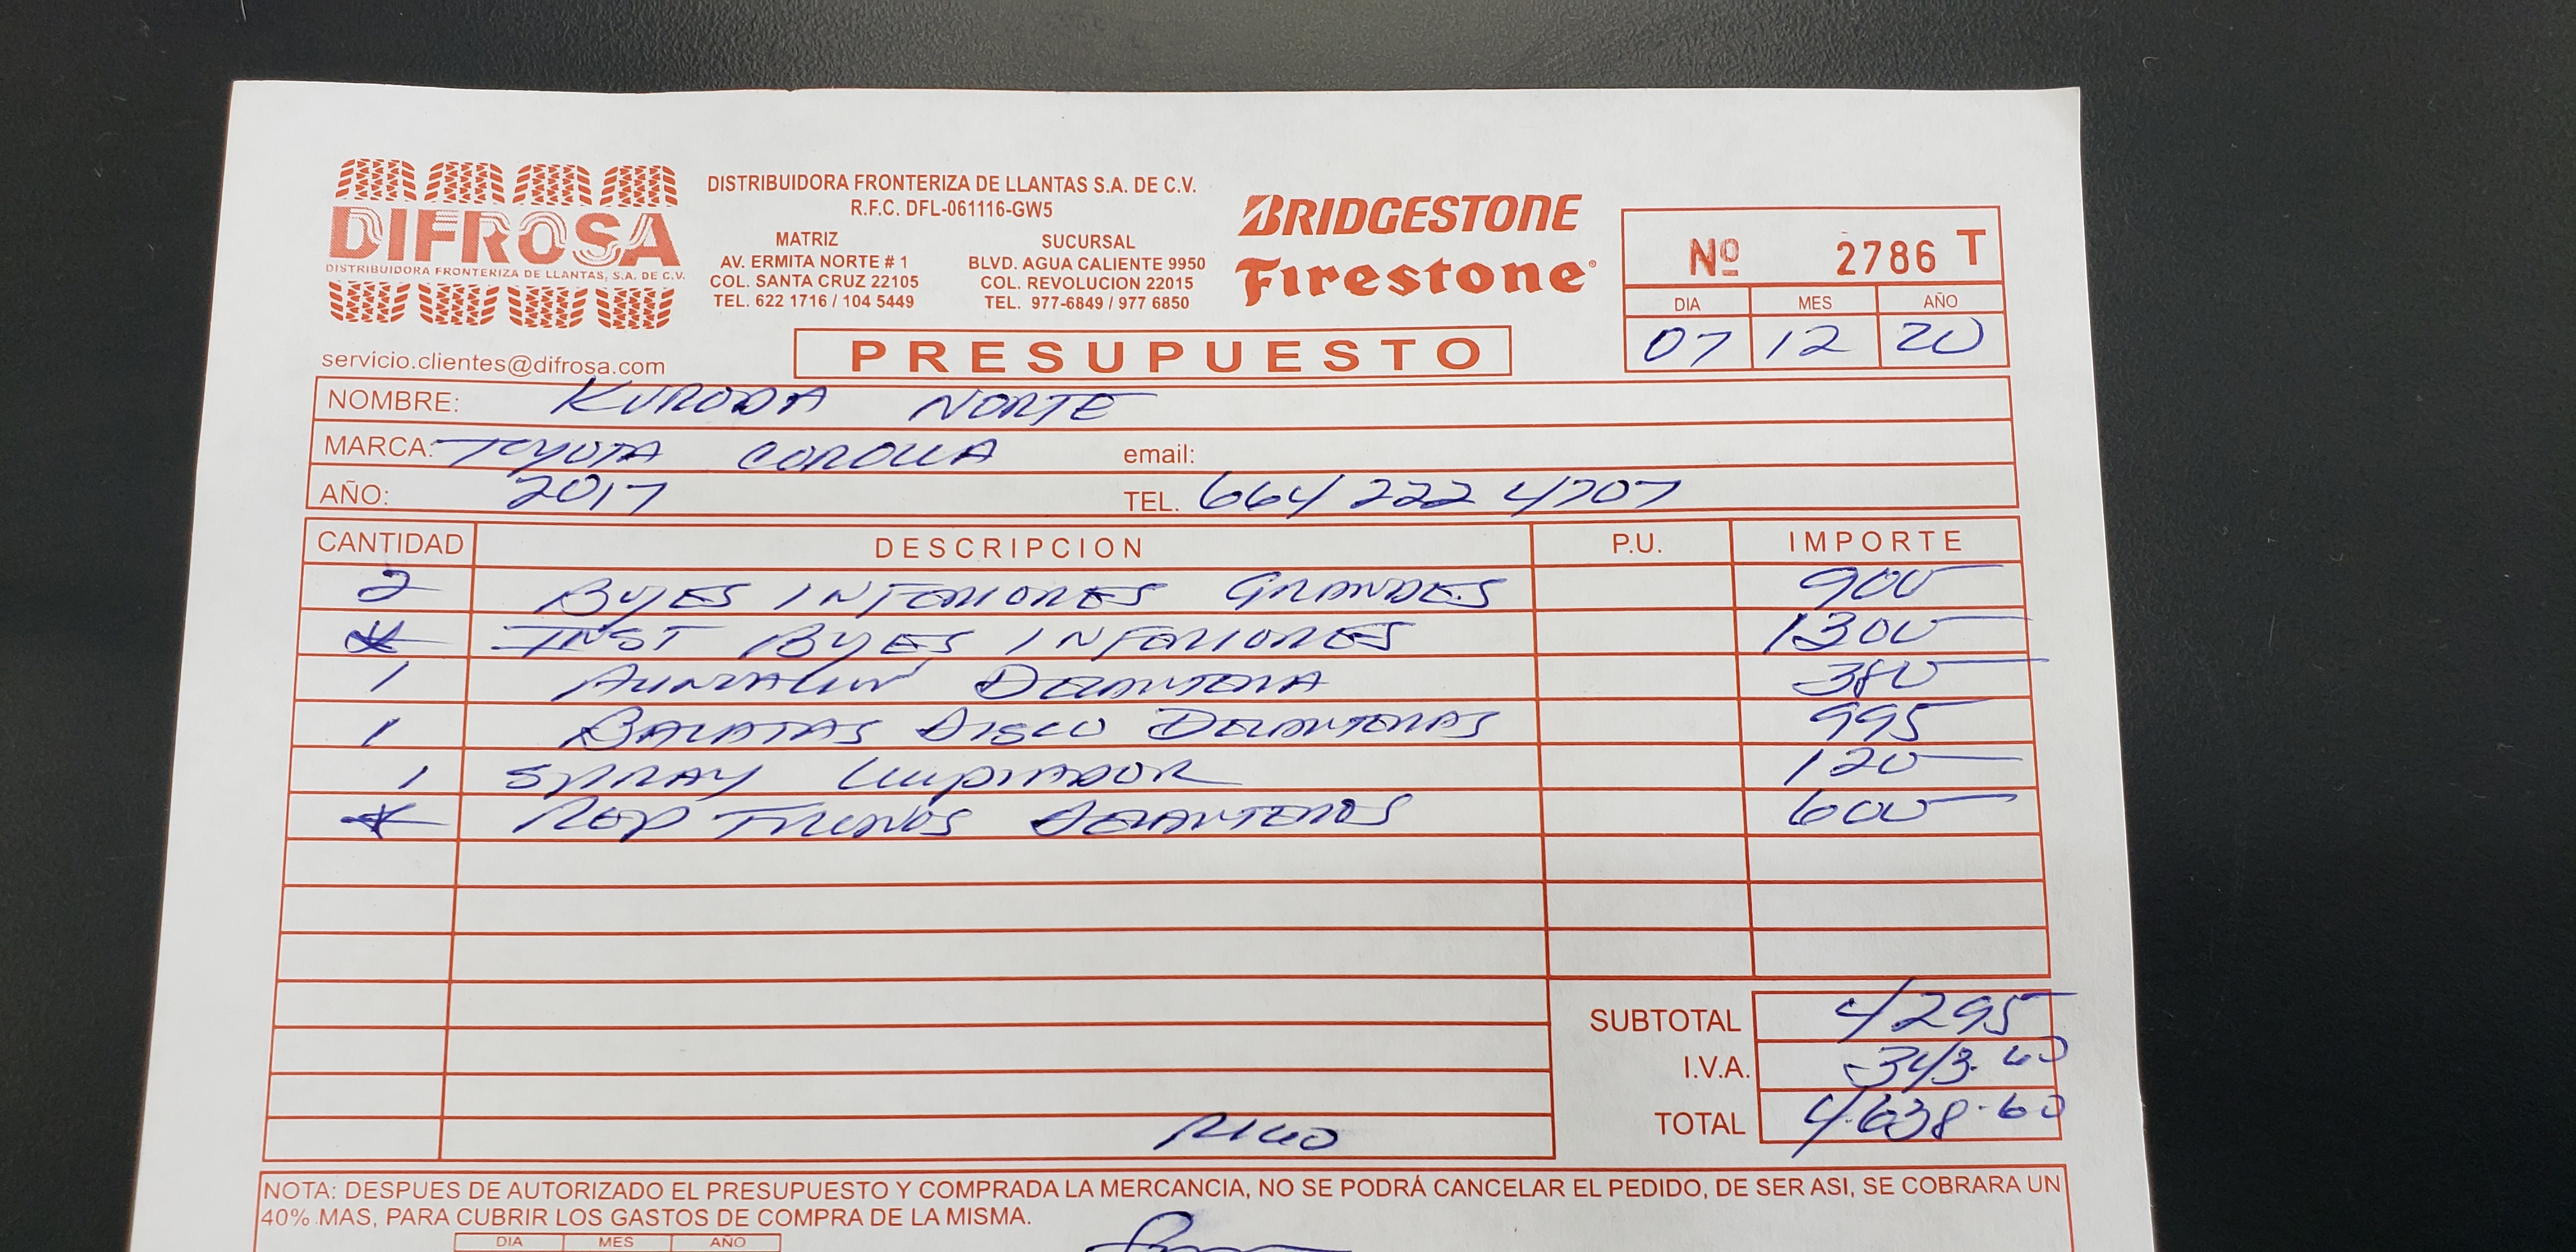 DIFROSA
DISTRIBUIDORA FRONTERIZA DE LLANTAS, S.A. DE C.V.
servicio.clientes@difrosa.com
DISTRIBUIDORA FRONTERIZA DE LLANTAS S.A. DE C.V.
R.F.C. DFL-061116-GW5
MATRIZ
AV. ERMITA NORTE # 1
COL. SANTA CRUZ 22105
TEL. 622 1716 / 104 5449
SUCURSAL
BLVD. AGUA CALIENTE 9950
COL. REVOLUCION 22015
TEL. 977-6849 / 977 6850
BRIDGESTONE
Firestone
Nº 2786 T
DIA MES AÑO
07 12 20
PRESUPUESTO
NOMBRE: KURODA NORTE
MARCA: TOYOTA COROLLA email:
AÑO: 2017 TEL. 664 222 4707
CANTIDAD DESCRIPCION P.U. IMPORTE
2 BUJES INFERIORES GRANDES 900
* INST BUJES INFERIORES 1300
1 DELANTERA 380
1 BALATAS DISCO DELANTERAS 995
1 SPRAY LIMPIADOR 120
* REP FRENOS DELANTEROS 600
SUBTOTAL 4295
I.V.A. 343.60
TOTAL 4638.60
NOTA: DESPUES DE AUTORIZADO EL PRESUPUESTO Y COMPRADA LA MERCANCIA, NO SE PODRÁ CANCELAR EL PEDIDO, DE SER ASI, SE COBRARA UN
40% MAS, PARA CUBRIR LOS GASTOS DE COMPRA DE LA MISMA.
DIA MES AÑO